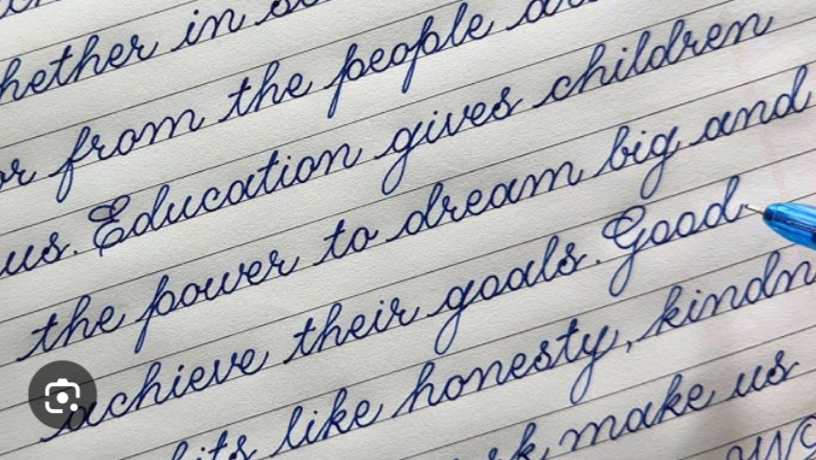 in
from the people
us. Education gives children
the power to dream big and
achieve their goals. Good
like honesty,
make us